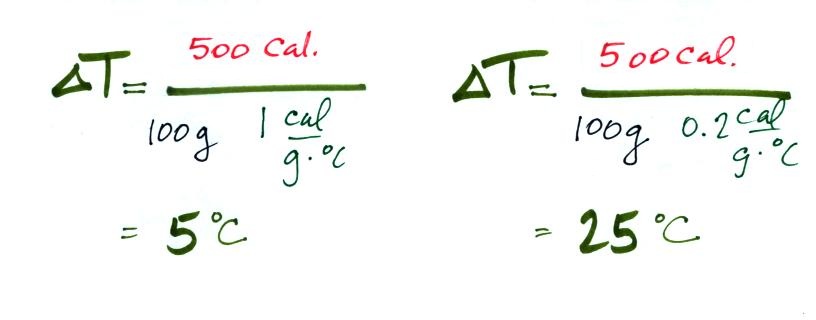 ΔT = 500 cal. / 100g 1 cal/g·°C
= 5°C
ΔT = 500 cal. / 100g 0.2 cal/g·°C
= 25°C